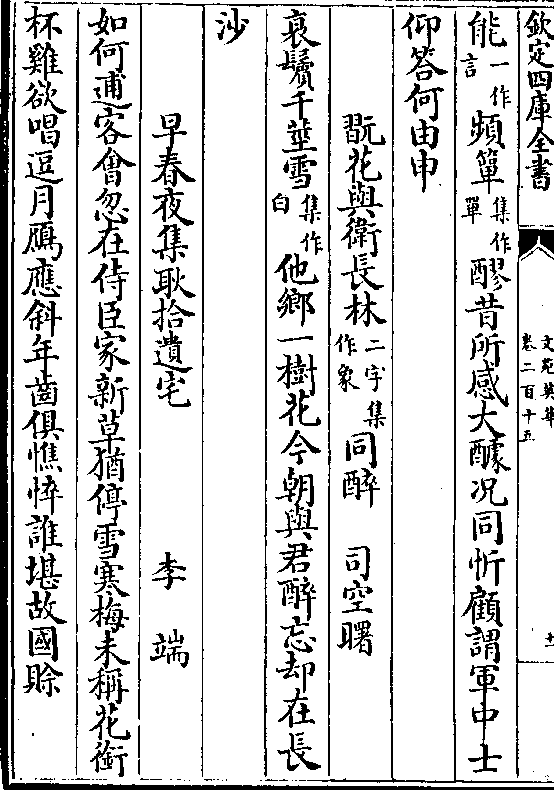 欽定四庫全書
文苑英華
卷二百十五
十一
能一作言頻簞集作單醪昔所感大醵况同忻顧謂軍中士
仰答何由申
翫花與衛長林二字集作象同醉　司空曙
衰鬢千莖雪集作白他鄉一樹花今朝與君醉忘却在長
沙
早春夜集耿拾遺宅　李端
如何逋客㑹忽在侍臣家新草猶停雪寒梅未稱花銜
杯雞欲唱逗月鴈應斜年齒俱憔悴誰堪故國賖